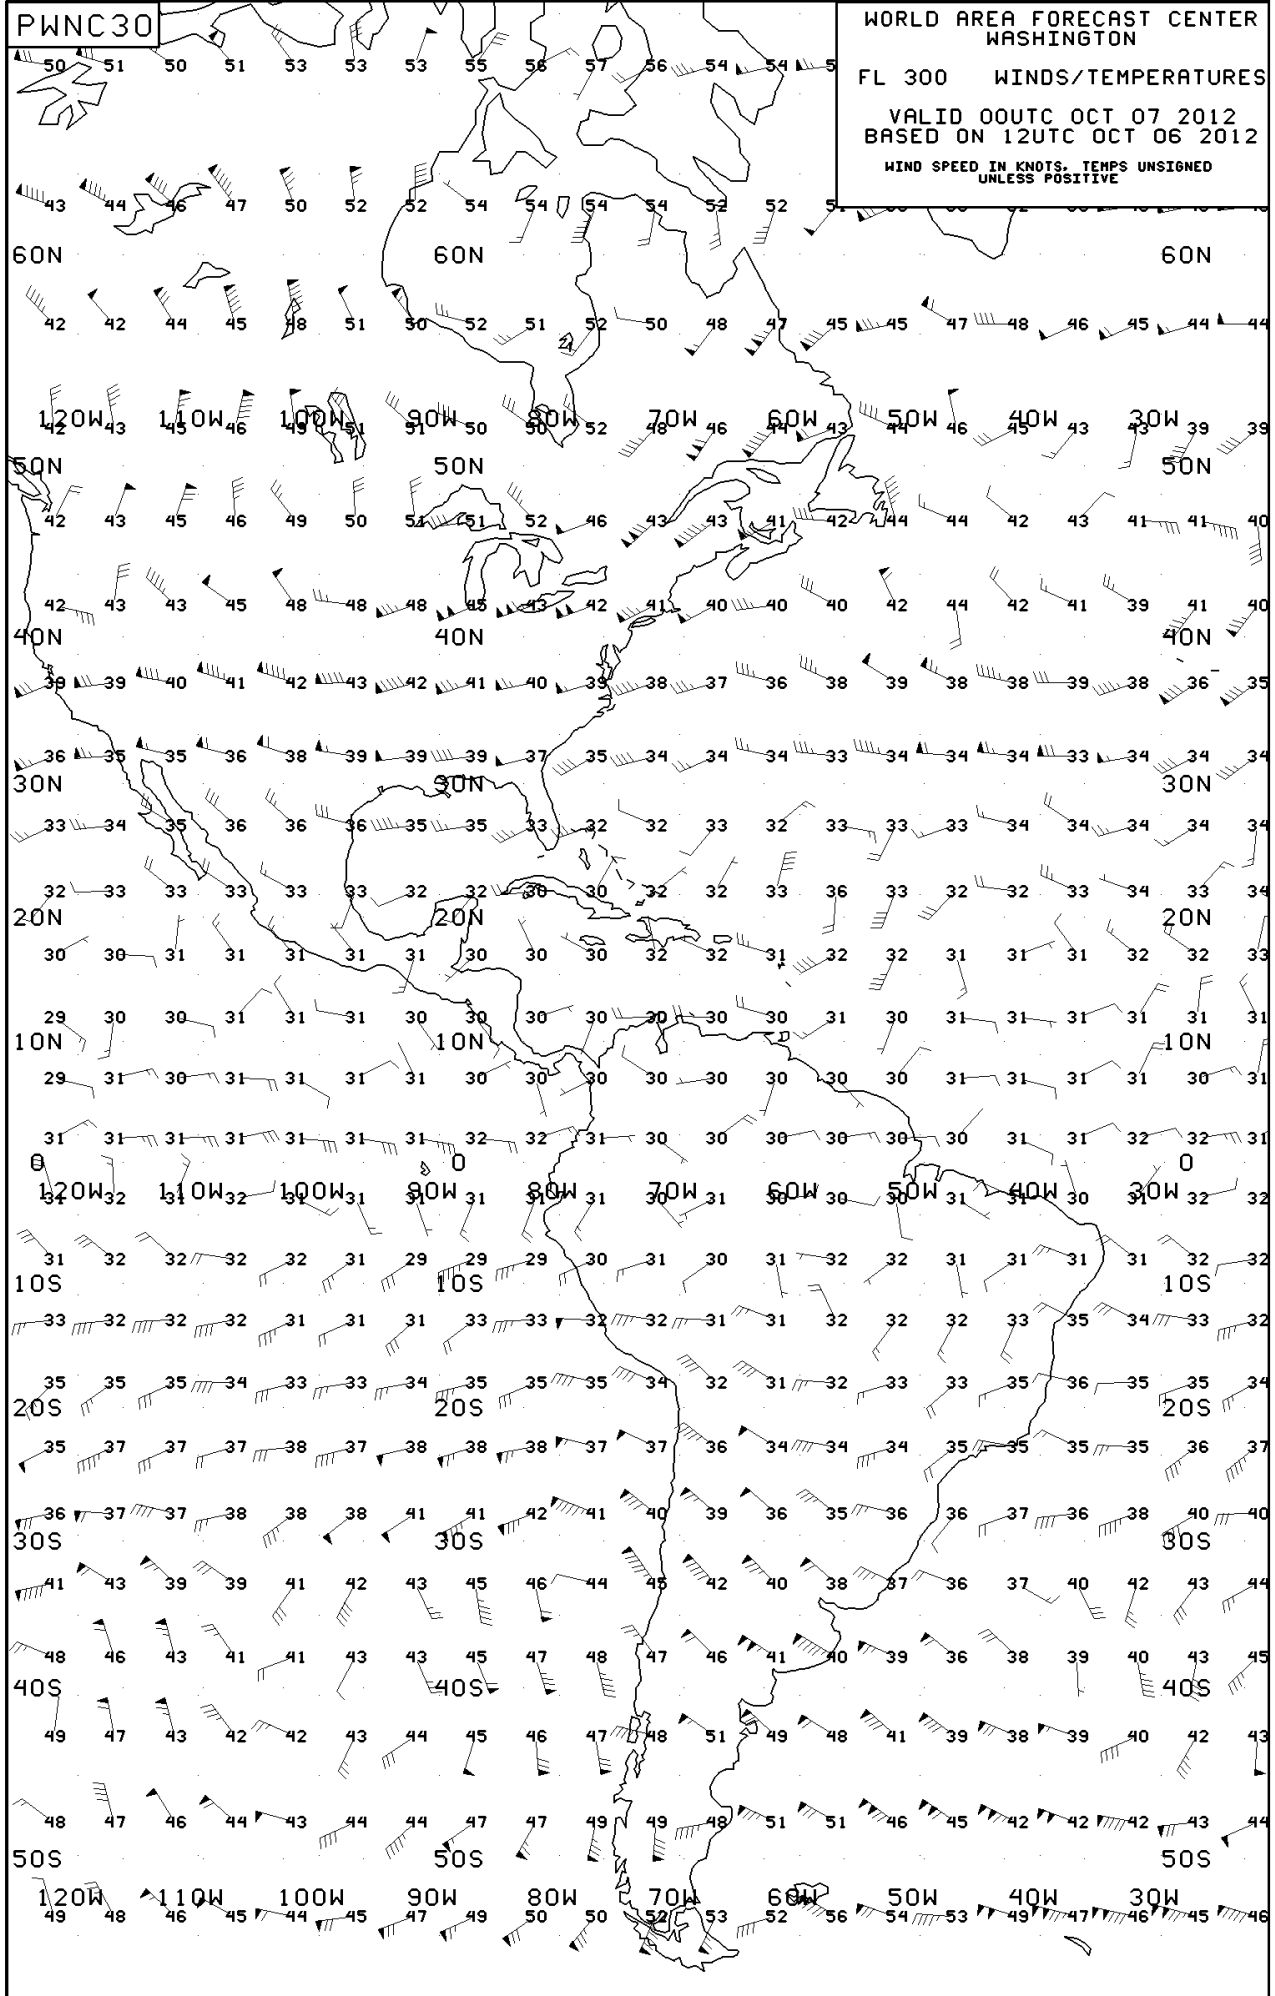 PWNC30
WORLD AREA FORECAST CENTER
WASHINGTON
FL 300 WINDS/TEMPERATURES
VALID 00UTC OCT 07 2012
BASED ON 12UTC OCT 06 2012
WIND SPEED IN KNOTS, TEMPS UNSIGNED
UNLESS POSITIVE
50 51 50 51 53 53 53 55 56 57 56 54 54
43 44 46 47 50 52 52 54 54 54 54 52 52
60N 60N 60N
42 42 44 45 48 51 50 52 51 52 50 48 47 45 45 47 48 46 45 44 44
120W 110W 100W 90W 80W 70W 60W 50W 40W 30W
42 43 45 46 49 51 51 50 50 52 48 46 44 43 44 46 45 43 43 39 39
50N 50N 50N
42 43 45 46 49 50 51 51 52 46 43 43 41 42 44 44 42 43 41 41 40
42 43 43 45 48 48 48 45 43 42 41 40 40 40 42 44 42 41 39 41 40
40N 40N 40N
39 39 40 41 42 43 42 41 40 39 38 37 36 38 39 38 38 39 38 36 35
36 35 35 36 38 39 39 39 37 35 34 34 34 33 34 34 34 33 34 34 34
30N 30N 30N
33 34 35 36 36 36 35 35 33 32 32 33 32 33 33 33 34 34 34 34 34
32 33 33 33 33 33 32 32 30 30 32 32 33 36 33 32 32 33 34 33 34
20N 20N 20N
30 30 31 31 31 31 31 30 30 30 32 32 31 32 32 31 31 31 32 32 33
29 30 30 31 31 31 30 30 30 30 30 30 30 31 30 31 31 31 31 31 31
10N 10N 10N
29 31 30 31 31 31 31 30 30 30 30 30 30 30 30 31 31 31 31 30 31
31 31 31 31 31 31 31 32 32 31 30 30 30 30 30 30 31 31 32 32 31
0 0 0
120W 110W 100W 90W 80W 70W 60W 50W 40W 30W
31 32 31 32 31 31 31 31 31 31 30 31 30 30 30 31 31 30 31 32 32
31 32 32 32 32 31 29 29 29 30 31 30 31 32 32 31 31 31 31 32 32
10S 10S 10S
33 32 32 32 31 31 31 33 33 32 32 31 31 32 32 32 33 35 34 33 32
35 35 35 34 33 33 34 35 35 35 34 32 31 32 33 33 35 36 35 35 34
20S 20S 20S
35 37 37 37 38 37 38 38 38 37 37 36 34 34 34 35 35 35 35 36 37
36 37 37 38 38 38 41 41 42 41 40 39 36 35 36 36 37 36 38 40 40
30S 30S 30S
41 43 39 39 41 42 43 45 46 44 45 42 40 38 37 36 37 40 42 43 44
48 46 43 41 41 43 43 45 47 48 47 46 41 40 39 36 38 39 40 43 45
40S 40S 40S
49 47 43 42 42 43 44 45 46 47 48 51 49 48 41 39 38 39 40 42 43
48 47 46 44 43 44 44 47 47 49 49 48 51 51 46 45 42 42 42 43 44
50S 50S 50S
120W 110W 100W 90W 80W 70W 60W 50W 40W 30W
49 48 46 45 44 45 47 49 50 50 52 53 52 56 54 53 49 47 46 45 46